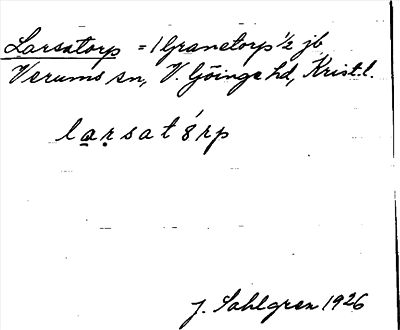 Larsatorp = 1 Granetorp 1/2 jb
Verums sn, V. Göinge hd, Krist. l.
larsatórp
J. Sahlgren 1926